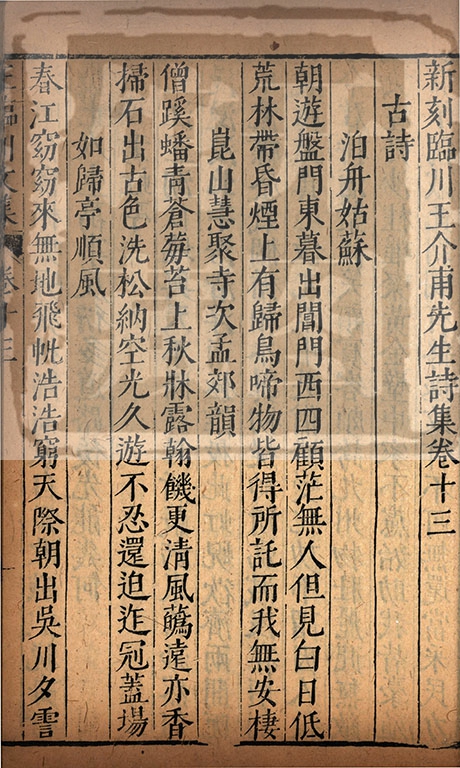 新刻臨川王介甫先生詩集卷十三
古詩
泊舟姑蘇
朝遊盤門東暮出閶門西四顧茫無人但見白日低
荒林帶昏煙上有歸鳥啼物皆得所託而我無安棲
崑山慧聚寺次孟郊韻
僧蹊蟠青蒼莓苔上秋牀露翰饑更清風蘤遠亦香
掃石出古色洗松納空光久遊不忍還迫迮冠蓋場
如歸亭順風
春江窈窈來無地飛帆浩浩窮天際朝出吳川夕霅
王臨川文集 卷十三